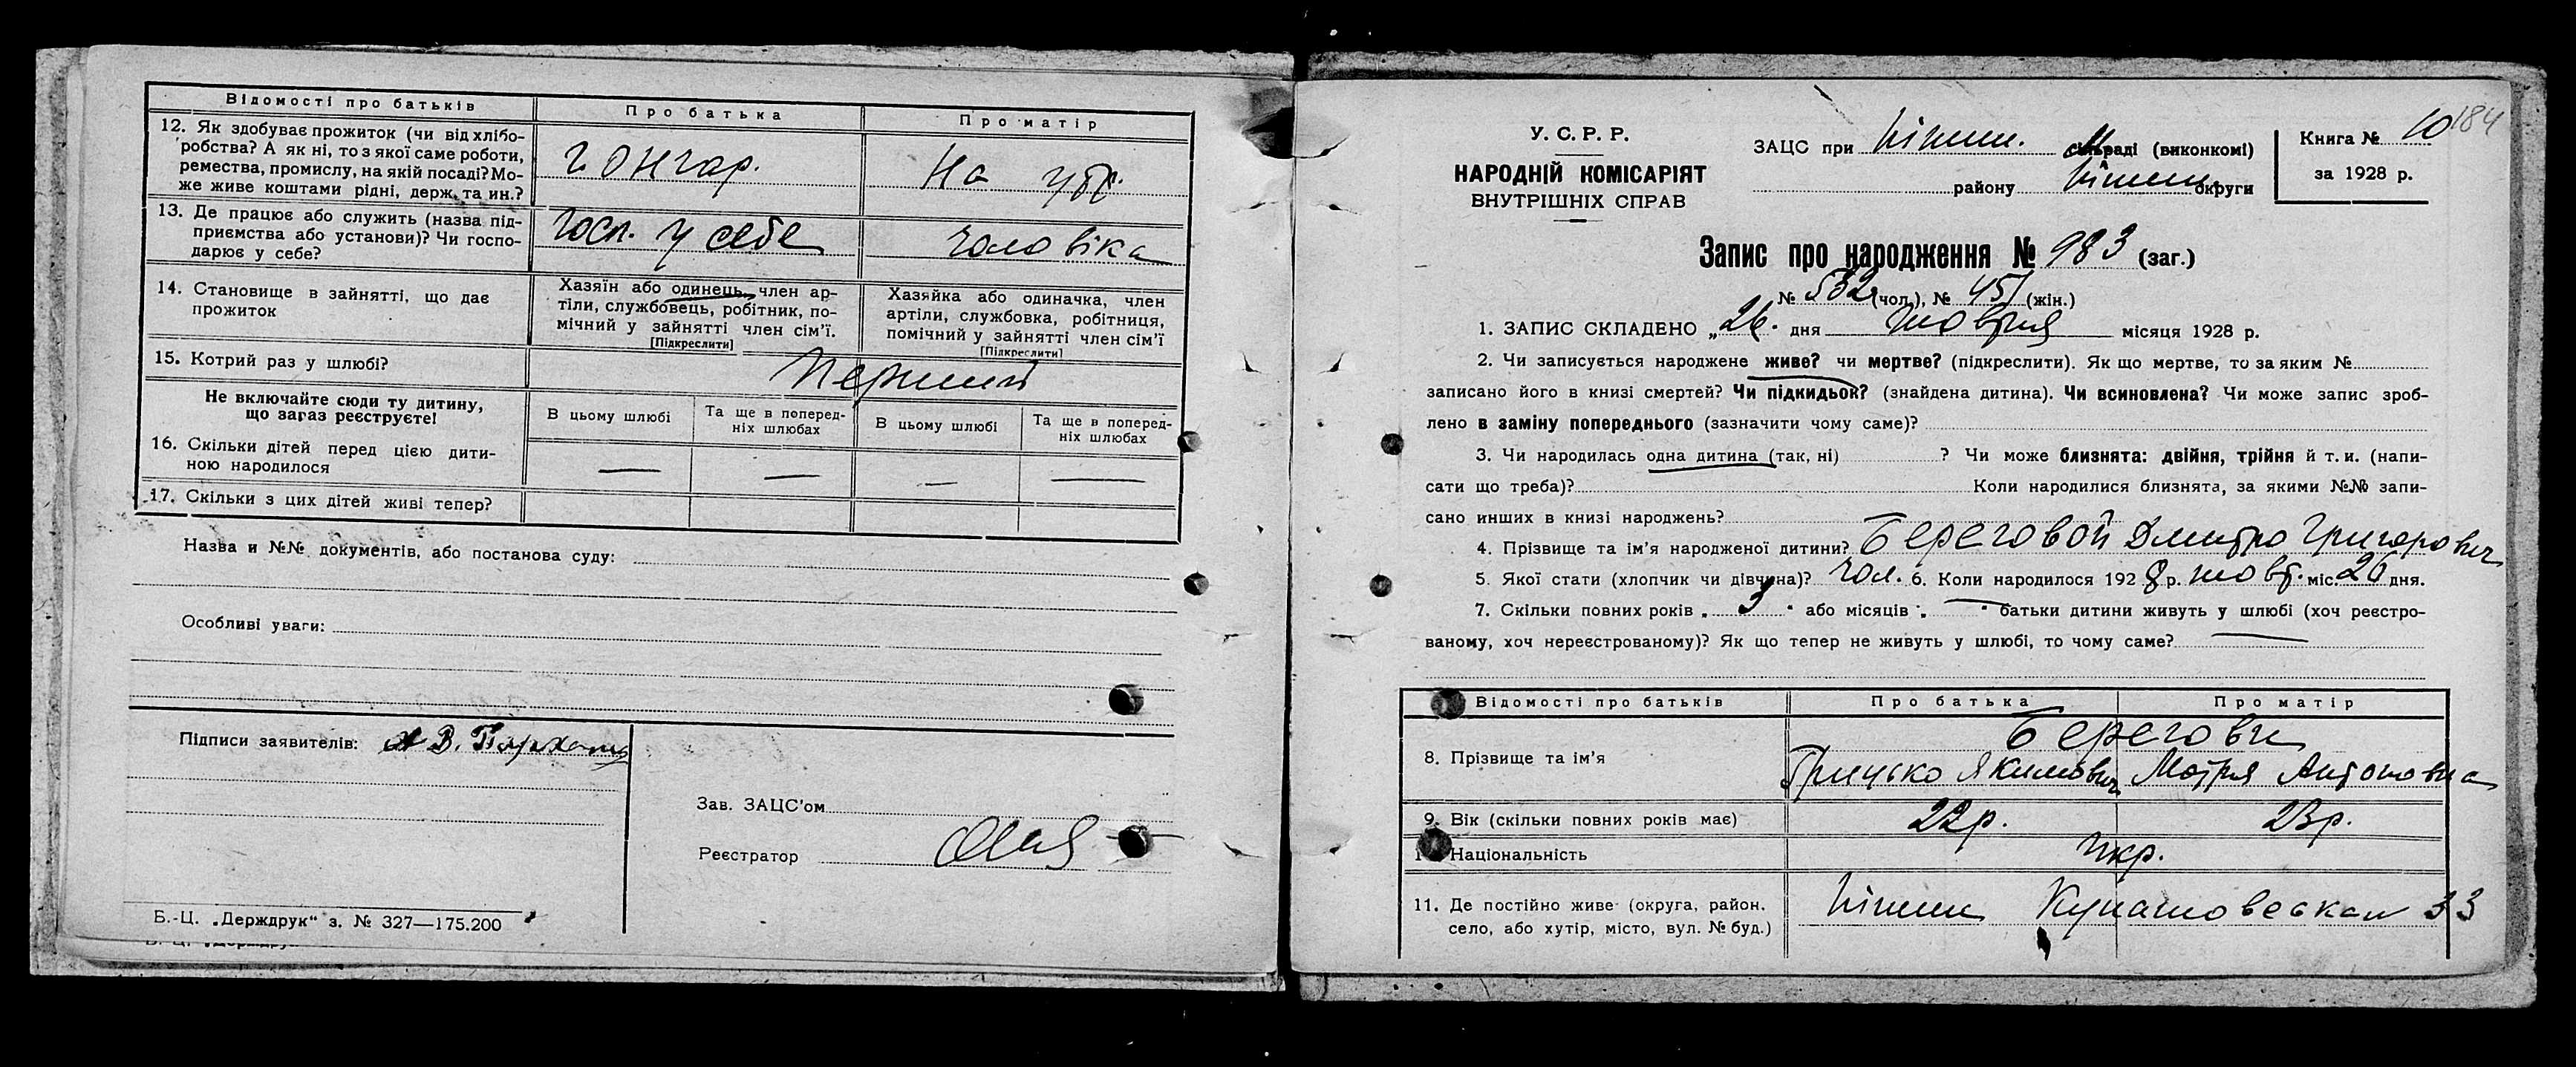 Відомості про батьків
Про батька
Про матір
12. Як здобуває прожиток (чи від хлібо-
робства? А як ні, то з якої саме роботи,
ремества, промислу, на якій посаді? Мо-
же живе коштами рідні, держ. та ин.?
гончар.
На утр.
13. Де працює або служить (назва під-
приємства або установи)? Чи госпо-
дарює у себе?
Госп. у себе
чоловіка
14. Становище в зайнятті, що дає
прожиток
Хазяїн або одинець, член ар-
тіли, службовець, робітник, по-
мічний у зайнятті член сім'ї.
[Підкреслити]
Хазяйка або одиначка, член
артіли, службовка, робітниця,
помічний у зайнятті член сім'ї
[Підкреслити]
15. Котрий раз у шлюбі?
Перший
Не включайте сюди ту дитину,
що загаз реєструєте!
В цьому шлюбі
Та ще в поперед-
ніх шлюбах
В цьому шлюбі
Та ще в поперед-
ніх шлюбах
16. Скільки дітей перед цією дити-
ною народилося
— — — —
17. Скільки з цих дітей живі тепер?
Назва и №№ документів, або постанова суду:
Особливі уваги:
Підписи заявителів:
Зав. ЗАЦС'ом
Реєстратор
Б.-Ц. „Держдрук" з. № 327—175.200
184
У. С. Р. Р.
НАРОДНІЙ КОМІСАРІЯТ
ВНУТРІШНІХ СПРАВ
ЗАЦС при Ніжин. сільраді (виконкомі)
району Ніжин. округи
Книга № 10
за 1928 р.
Запис про народження № 983 (заг.)
№ 532 (чол.), № 451 (жін.)
1. ЗАПИС СКЛАДЕНО „26. дня жовтня місяця 1928 р.
2. Чи записується народжене живе? чи мертве? (підкреслити). Як що мертве, то за яким №
записано його в книзі смертей? Чи підкидьок? (знайдена дитина). Чи всиновлена? Чи може запис зроб-
лено в заміну попереднього (зазначити чому саме)?
3. Чи народилась одна дитина (так, ні) ? Чи може близнята: двійня, трійня й т. и. (напи-
сати що треба)? Коли народилися близнята, за якими №№ запи-
сано инших в книзі народжень?
4. Прізвище та ім'я народженої дитини? Береговой Дмитро Григорович
5. Якої стати (хлопчик чи дівчина)? чол. 6. Коли народилося 1928 р. жовт. міс 26 дня.
7. Скільки повних років „ 3 " або місяців „ — " батьки дитини живуть у шлюбі (хоч реєстро-
ваному, хоч нереєстрованому)? Як що тепер не живуть у шлюбі, то чому саме? —
Відомості про батьків
Про батька
Про матір
8. Прізвище та ім'я
Берегови
Грицько Якимович
Мотря Антоновна
9. Вік (скільки повних років має)
22 р.
23 р.
Національність
Укр.
11. Де постійно живе (округа, район,
село, або хутір, місто, вул. № буд.)
Ніжин Кунашовская 33